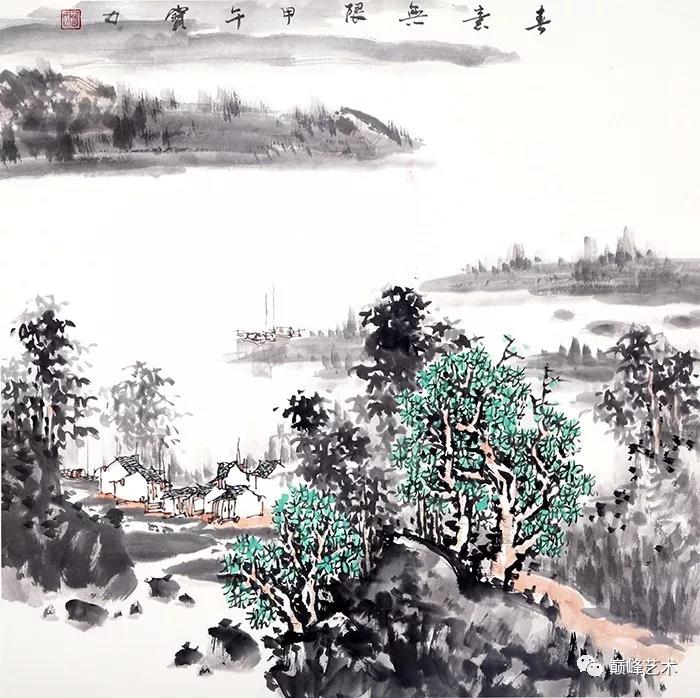 春意無限甲午寶力
巅峰艺术